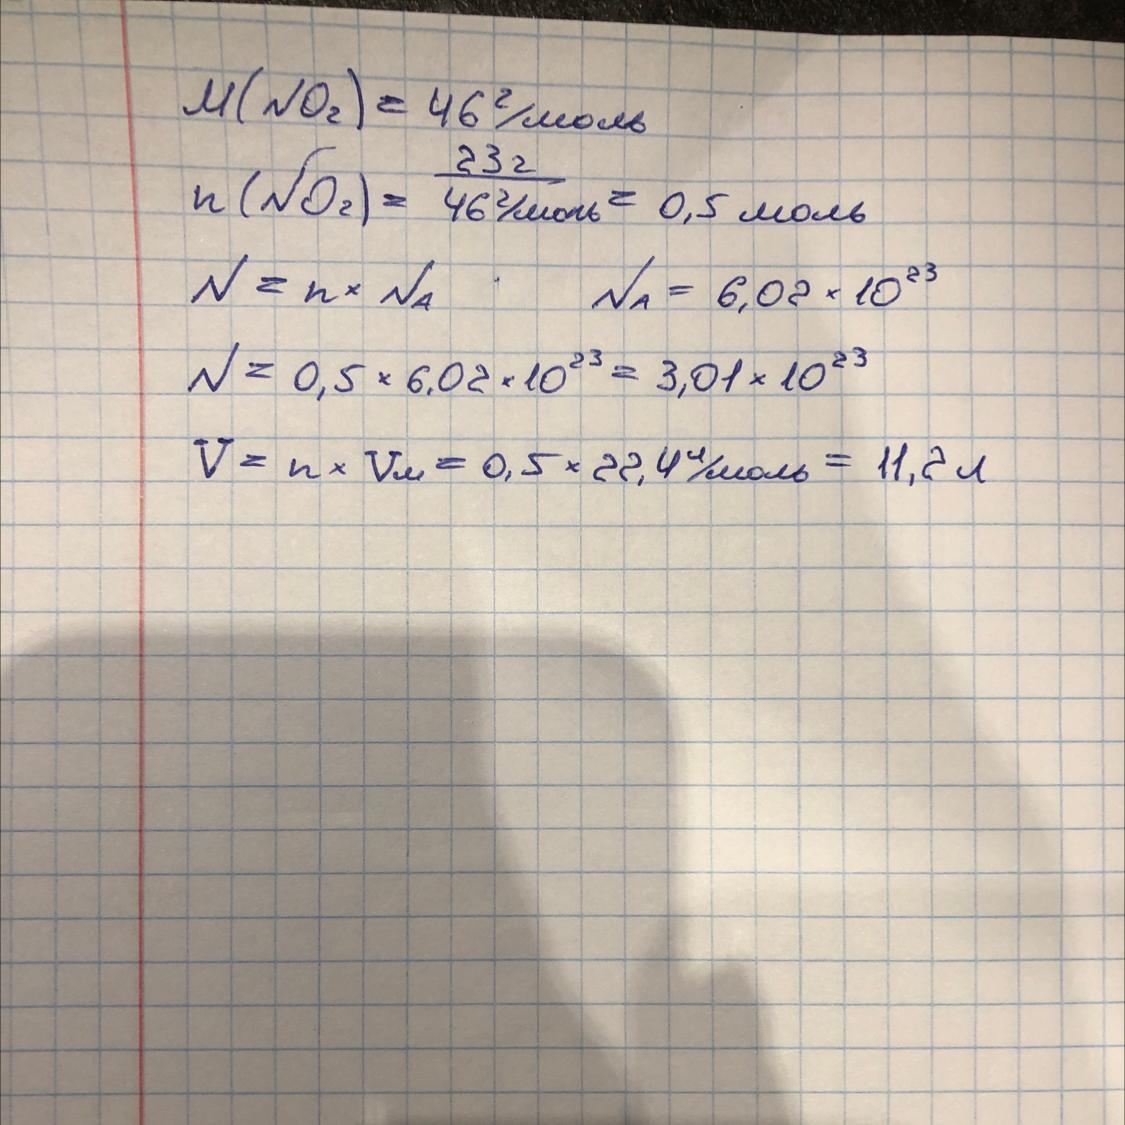 M(NO₂) = 46 г/моль
n(NO₂) = 23 г / 46 г/моль = 0,5 моль
N = n × N_A   N_A = 6,02 × 10²³
N = 0,5 × 6,02 × 10²³ = 3,01 × 10²³
V = n × Vм = 0,5 × 22,4 л/моль = 11,2 л